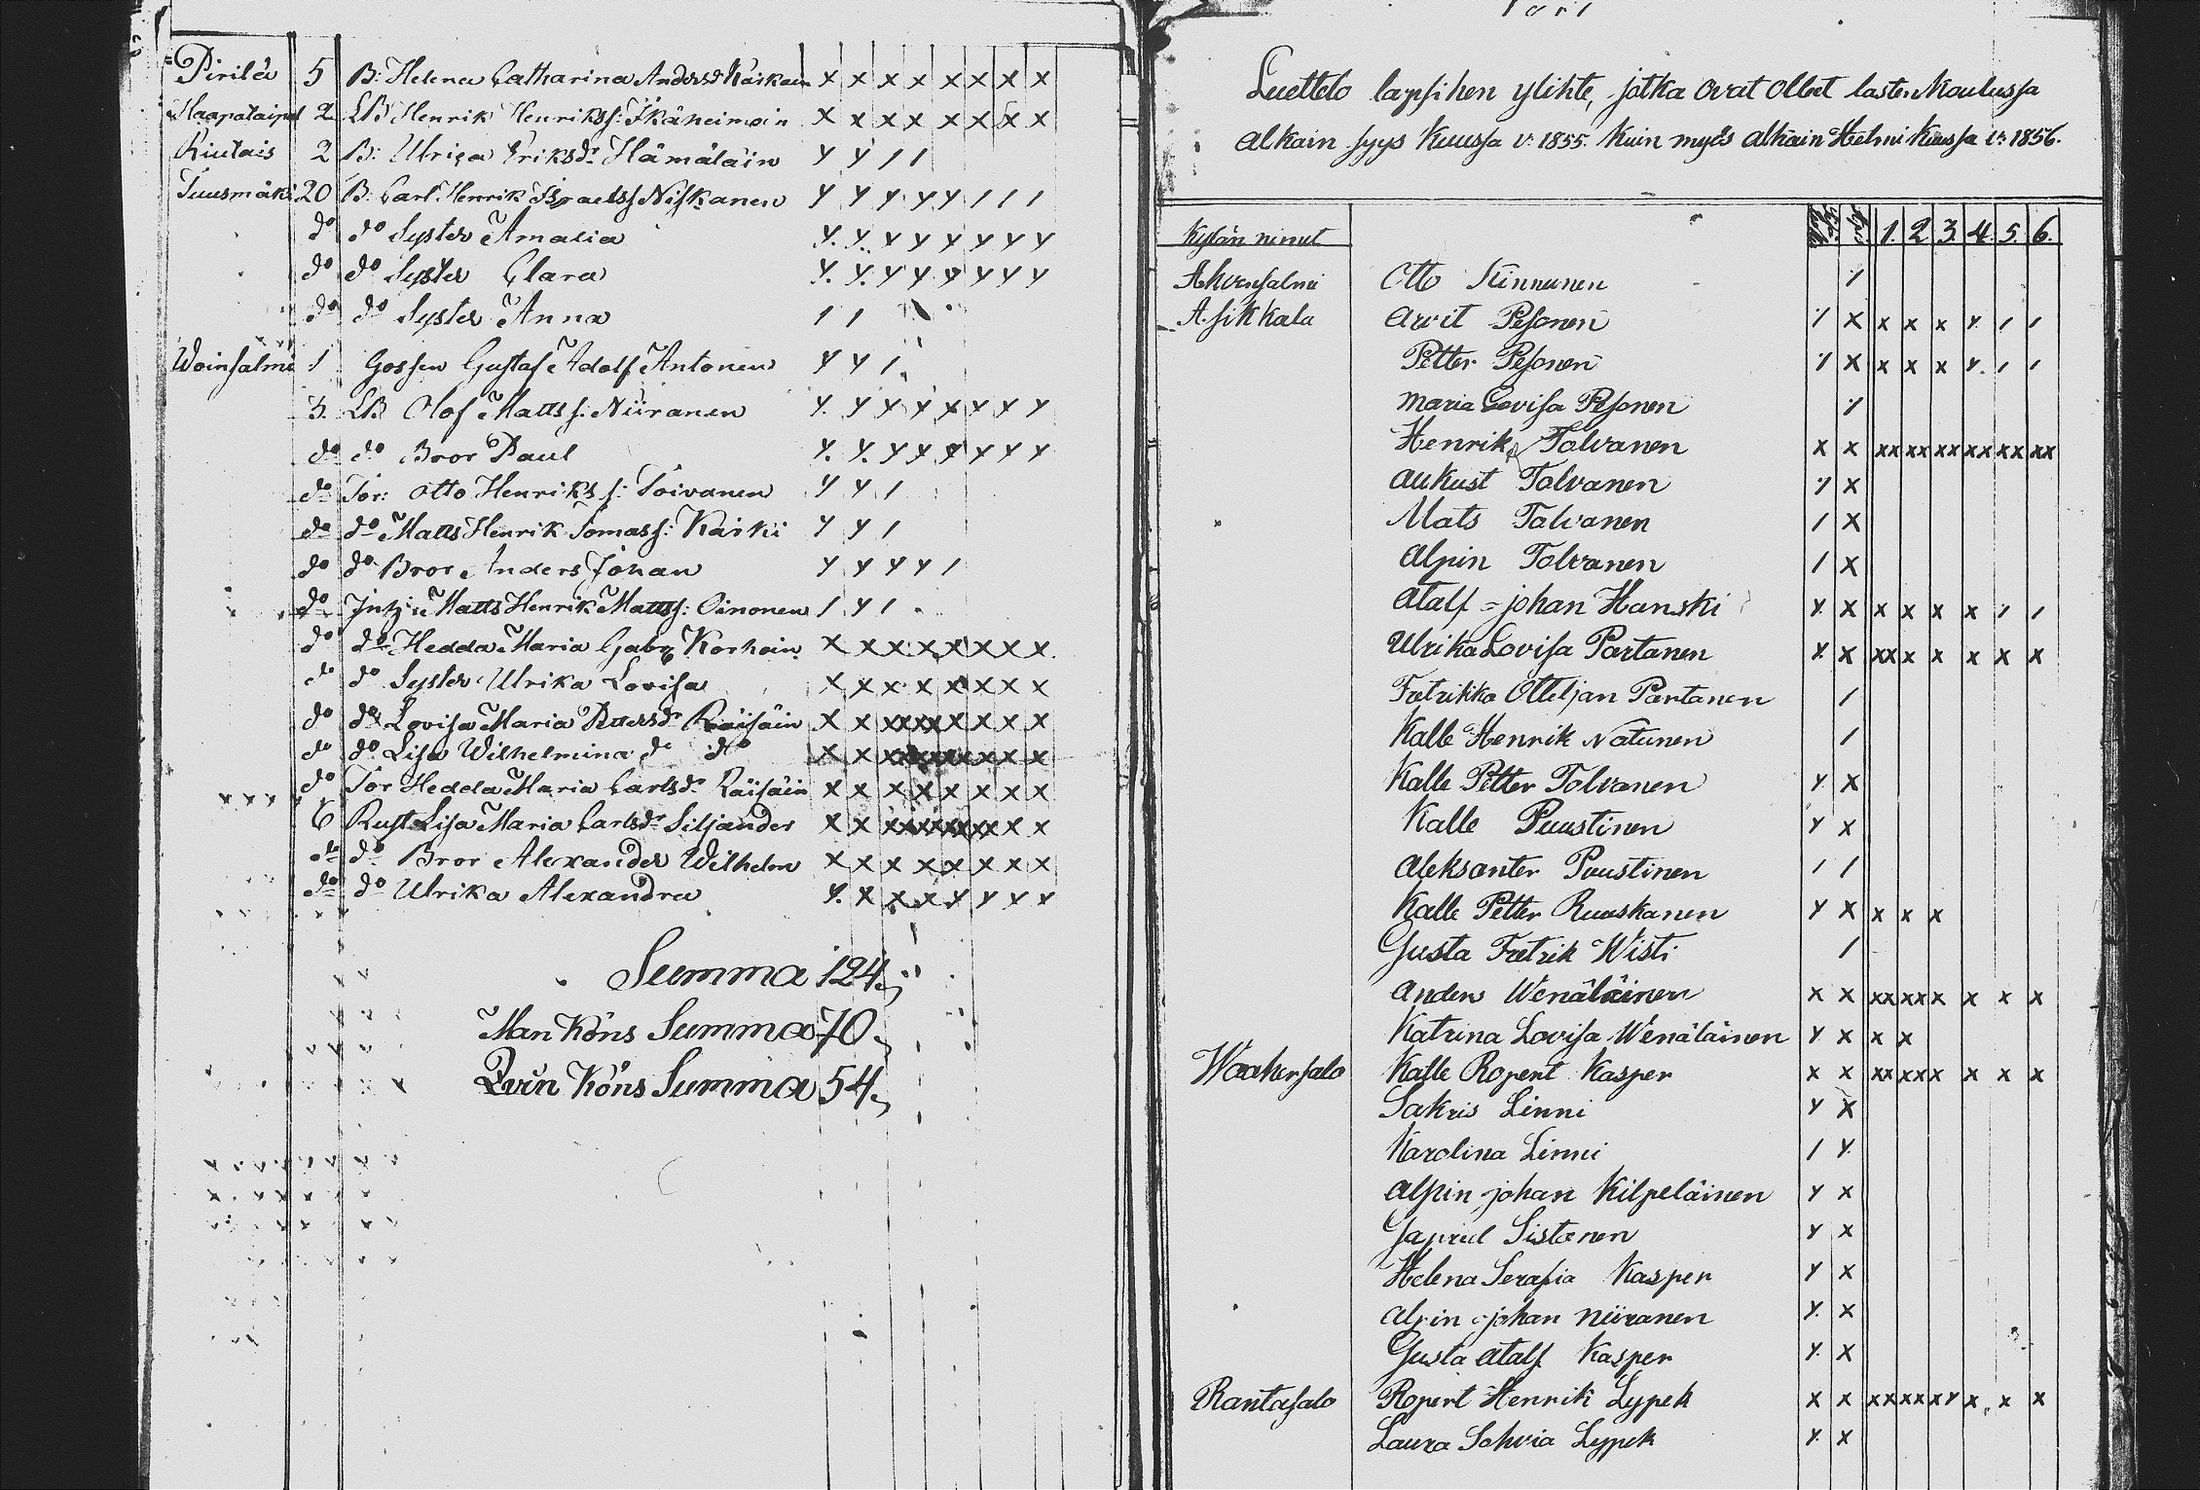 Pirilä 5 B: Helena Catharina Andersdr Käskain x x x x x x x x
Haapataipal 2 LB Henrik Henrikss: Ikäheimoin x x x x x x x x
Kiutais 2 B: Ulrica Eriksdr Hämäläin y y / /
Tuusmäki 20 B: Carl Henrik Israelss Niskanen y y y y y / / /
do do Syster Amalia y. y. y y y y y y
do do Syster Clara y. y. y y y y y y
do do Syster Anna / /
Woinsalmi 1 Gossen Gustaf Adolf Antonen y y /
3. LB Olof Matts s: Niiranen y. y y y x y y y
do do Bror Paul y. y. y y y y y y
do Tor: Otto Henriks s: Toivanen y y /
do do Matts Henrik Tomass: Käiki y y /
do do Bror Anders Johan y y y y /
do Inh: Matts Henrik Mattss: Oinonen / y /
do do Hedda Maria Gabr Korhoin x x x x x x x x
do do Syster Ulrika Lovisa x x x x x x x x
do do Lovisa Maria Räisäin x x xx xx x x x x
do do Lisa Wilhelmina do do x x x x x x
do Tor Hedda Maria Carlsdr Räisäin x x x x x x x x
6 Rust Lisa Maria Carlsdr Siljander x x xx xx xx xx x x
do do Bror Alexander Wilhelm x x x x x x x x
do do Ulrika Alexandra y. x x x y y y y
Summa 124.
Man Köns Summa 70.
Qvin Köns Summa 54.
Luettelo lapsihen ylihte, jotka ovat ollet lasten Koulussa
alkain syys Kuussa v: 1855. Kuin myös alkain Helmi Kuussa v: 1856.
Kylän nimet 1. 2. 3. 4. 5. 6.
Ahvensalmi Otto Kinnunen /
Asikkala Arvit Pesonen / x x x x y / /
Petter Pesonen / x x x x y. / /
Maria Lovisa Pesonen /
Henrik Tolvanen x x xx xx xx xx xx xx
Aukust Tolvanen / x
Mats Tolvanen / x
Alpin Tolvanen / x
Atalf = johan Hanski y. x x x x x / /
Ulrika Lovisa Partanen y. x xx x x x x x
Fretrikka Otteljan Partanen /
Kalle Henrik Natunen /
Kalle Petter Tolvanen y x
Kalle Puustinen y x
Aleksanter Puustinen / /
Kalle Petter Ruuskanen y x x x x
Gusta Fretrik Wisti /
Anders Wenäläinen x x xx xx x x x x
Katrina Lovisa Wenäläinen y x x x
Waahersalo Kalle Ropert Kasper x x xx xx x x x x
Sakris Linni y x
Karolina Linni / y.
Alpin johan Kilpeläinen y x
Japriel Sistonen y x
Helena Serafia Kasper y x
Alpin = johan Niiranen y. x
Gusta Atalf Kasper y. x
Rantasalo Ropert Henrik Lypek x x xx xx x y x x x
Laura Sohvia Lypek y. x